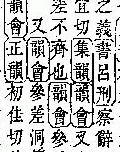 之義書呂刑察辭
宜切集韻韻會又
不齊也韻會參
又韻會參差洞
會正韻初佳切